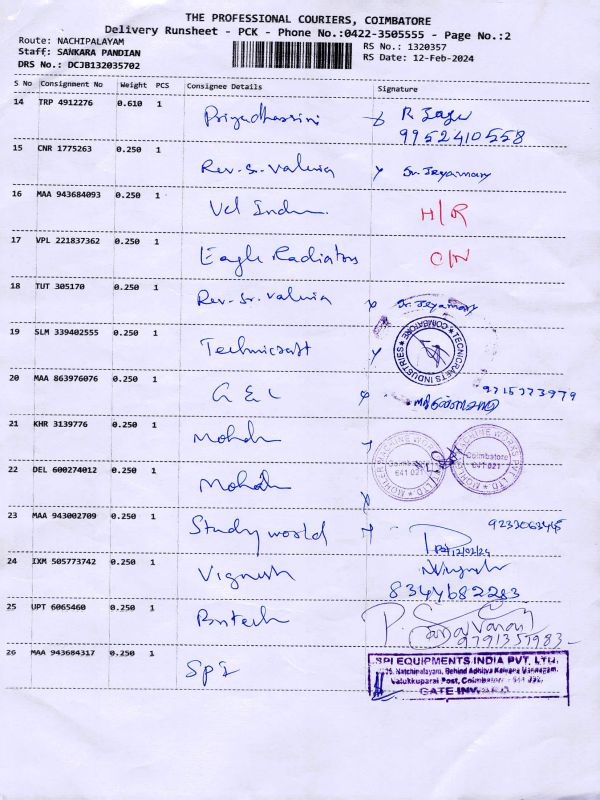 THE PROFESSIONAL COURIERS, COIMBATORE
Delivery Runsheet - PCK - Phone No.:0422-3505555 - Page No.:2
Route: NACHIPALAYAM
RS No.: 1320357
Staff: SANKARA PANDIAN
RS Date: 12-Feb-2024
DRS No.: DCJB132035702
S No Consignment No Weight PCS Consignee Details Signature
14 TRP 4912276 0.610 1 Priyadharsini
9952410558
15 CNR 1775263 0.250 1 Rev. Sr. Valeria Sr. Jeyamary
16 MAA 943684093 0.250 1 Vel H/R
17 VPL 221837362 0.250 1 Eagle Radiators
18 TUT 305170 0.250 1 Rev. Sr. Valeria Sr. Jeyamary
19 SLM 339402555 0.250 1 Technicraft
TECNICRAFTS INDUSTRIES ★ COIMBATORE ★
20 MAA 863976076 0.250 1 9715373979
21 KHR 3139776 0.250 1
MACHINE WORKS PVT. LTD
Coimbatore
641 021
MACHINE WORKS PVT LTD
Coimbatore
641 021
22 DEL 600274012 0.250 1
23 MAA 943002709 0.250 1 Study world
12/02/24
24 IXM 505773742 0.250 1 Vignesh
8344682283
25 UPT 6065460 0.250 1
P. Saravanan
9791357983
26 MAA 943684317 0.250 1 SPI
SPI EQUIPMENTS INDIA PVT. LTD.
Natchipalayam, Behind Adhitya
Post, Coimbatore
GATE INWARD